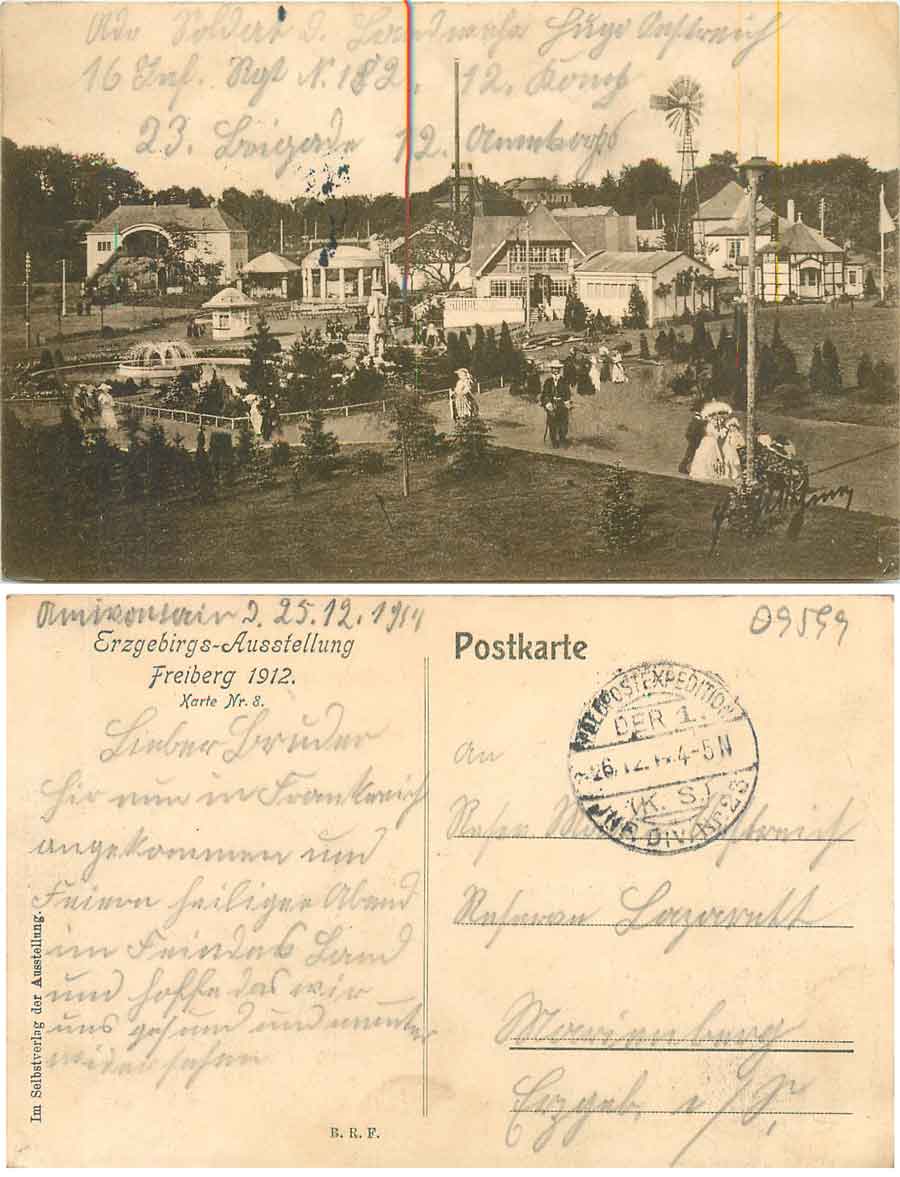 Adr Soldat d. Landwehr Hugo Oestreich
16 Inf. Rgt N. 182. 12. Komp
23. Brigade 12. Armeekorps
d. 25.12.1914
09599
Erzgebirgs-Ausstellung
Freiberg 1912.
Karte Nr. 8.
Lieber Bruder
Hir nun in Frankreich
angekommen und
Feiern heiligen Abend
im Feindes Land
und hoffe das wir
uns gesund und munter
widersehen
Im Selbstverlag der Ausstellung.
B. R. F.
Postkarte
FELDPOSTEXPEDITION
DER 1.
26.12.14.4-5N
(K. S.)
INF. DIV. Nr. 23
An
Oestreich
Reserve Lazarett
Marienberg
Erzgeb. i/S.